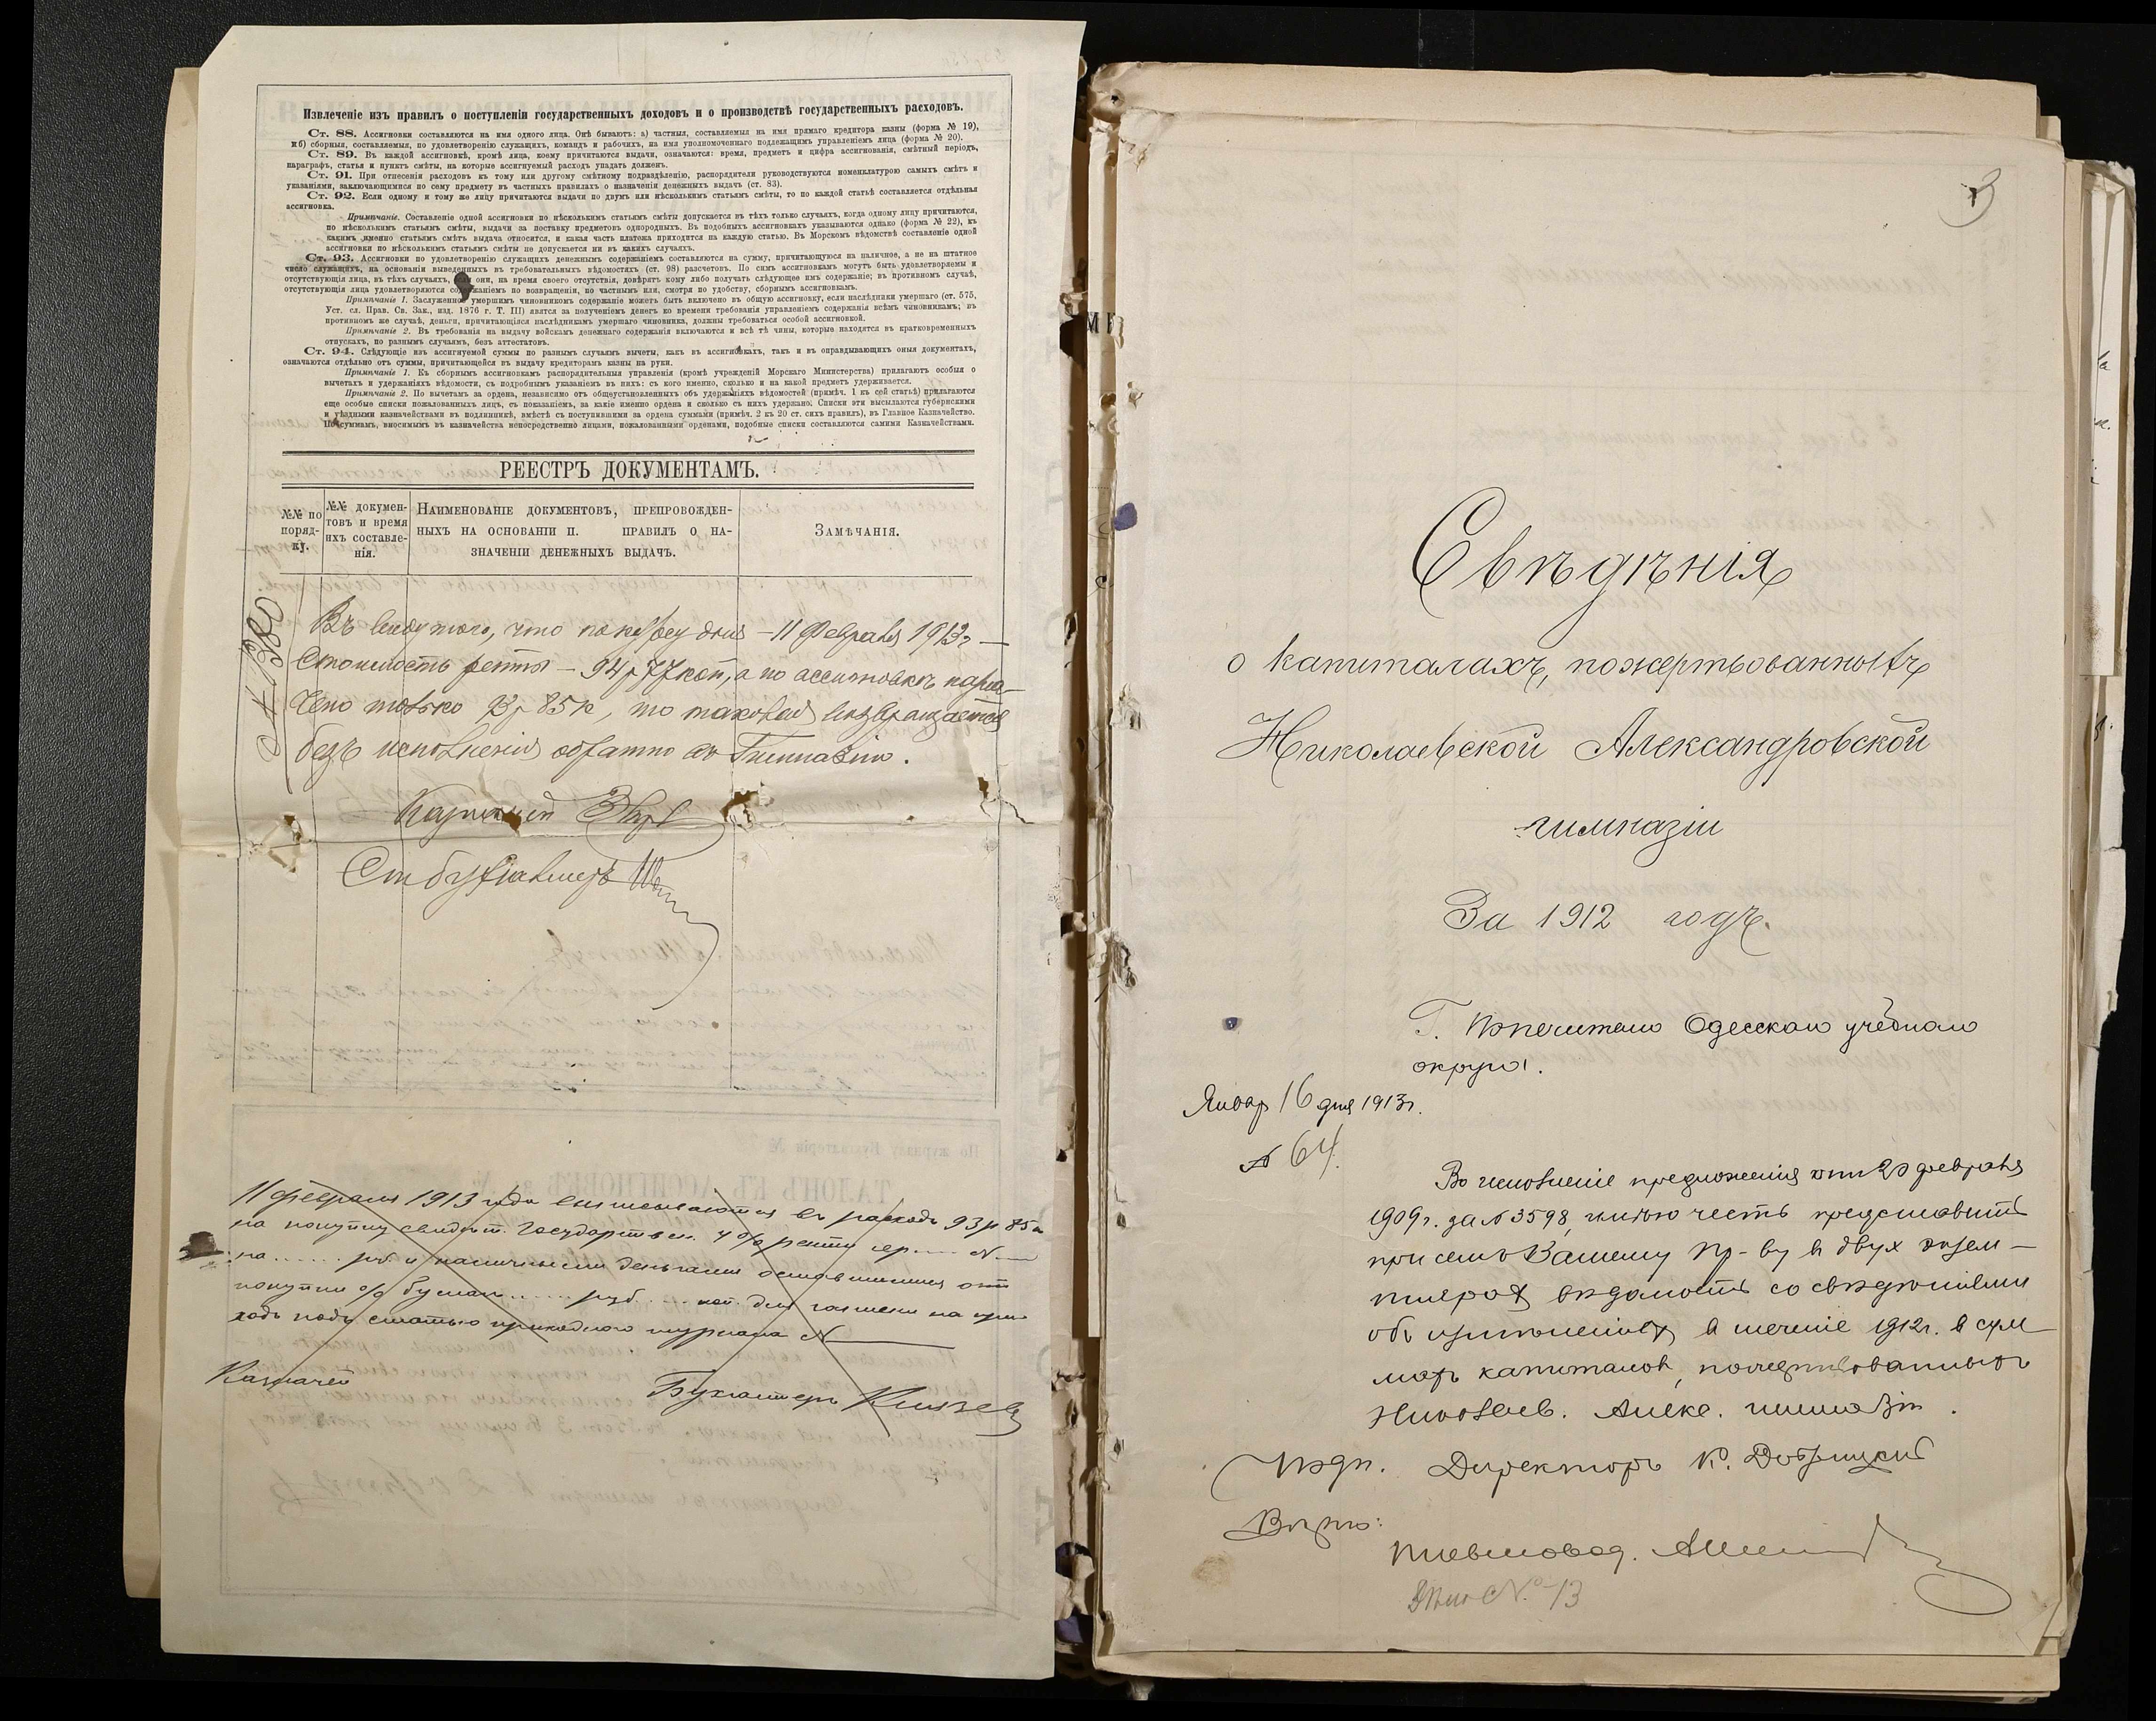 Извлеченіе изъ правилъ о поступленіи государственныхъ доходовъ и о производствѣ государственныхъ расходовъ.
Ст. 88. Ассигновки составляются на имя одного лица. Онѣ бываютъ: а) частныя, составляемыя на имя прямаго кредитора казны (форма № 19),
и б) сборныя, составляемыя, по удовлетворенію служащихъ, командъ и рабочихъ, на имя уполномоченнаго подлежащимъ управленіемъ лица (форма № 20).
Ст. 89. Въ каждой ассигновкѣ, кромѣ лица, коему причитаются выдачи, означаются: время, предметъ и цифра ассигнованія, смѣтный періодъ,
параграфъ, статья и пунктъ смѣты, на которые ассигнуемый расходъ упадать долженъ.
Ст. 91. При отнесеніи расходовъ къ тому или другому смѣтному подраздѣленію, распорядители руководствуются номенклатурою самыхъ смѣтъ и
указаніями, заключающимися по сему предмету въ частныхъ правилахъ о назначеніи денежныхъ выдачъ (ст. 83).
Ст. 92. Если одному и тому же лицу причитаются выдачи по двумъ или нѣсколькимъ статьямъ смѣты, то по каждой статьѣ составляется отдѣльная
ассигновка.
Примѣчаніе. Составленіе одной ассигновки по нѣсколькимъ статьямъ смѣты допускается въ тѣхъ только случаяхъ, когда одному лицу причитаются,
по нѣсколькимъ статьямъ смѣты, выдачи за поставку предметовъ однородныхъ. Въ подобныхъ ассигновкахъ указываются однако (форма № 22), къ
какимъ именно статьямъ смѣтъ выдача относится, и какая часть платежа приходится на каждую статью. Въ Морскомъ вѣдомствѣ составленіе одной
ассигновки по нѣсколькимъ статьямъ смѣты не допускается ни въ какихъ случаяхъ.
Ст. 93. Ассигновки по удовлетворенію служащихъ денежнымъ содержаніемъ составляются на сумму, причитающуюся на наличное, а не на штатное
число служащихъ, на основаніи выведенныхъ въ требовательныхъ вѣдомостяхъ (ст. 98) разсчетовъ. По симъ ассигновкамъ могутъ быть удовлетворяемы и
отсутствующія лица, въ тѣхъ случаяхъ, если они, на время своего отсутствія, довѣрятъ кому либо получать слѣдующее имъ содержаніе; въ противномъ случаѣ,
отсутствующія лица удовлетворяются содержаніемъ по возвращеніи, по частнымъ или, смотря по удобству, сборнымъ ассигновкамъ.
Примѣчаніе 1. Заслуженное умершимъ чиновникомъ содержаніе можетъ быть включено въ общую ассигновку, если наслѣдники умершаго (ст. 575,
Уст. сл. Прав. Св. Зак., изд. 1876 г. Т. III) явятся за полученіемъ денегъ ко времени требованія управленіемъ содержанія всѣмъ чиновникамъ; въ
противномъ же случаѣ, деньги, причитающіяся наслѣдникамъ умершаго чиновника, должны требоваться особой ассигновкой.
Примѣчаніе 2. Въ требованія на выдачу войскамъ денежнаго содержанія включаются и всѣ тѣ чины, которые находятся въ кратковременныхъ
отпускахъ, по разнымъ случаямъ, безъ аттестатовъ.
Ст. 94. Слѣдующіе изъ ассигнуемой суммы по разнымъ случаямъ вычеты, какъ въ ассигновкахъ, такъ и въ оправдывающихъ оныя документахъ,
означаются отдѣльно отъ суммы, причитающейся въ выдачу кредиторамъ казны на руки.
Примѣчаніе 1. Къ сборнымъ ассигновкамъ распорядительныя управленія (кромѣ учрежденій Морскаго Министерства) прилагаютъ особыя о
вычетахъ и удержаніяхъ вѣдомости, съ подробнымъ указаніемъ въ нихъ: съ кого именно, сколько и на какой предметъ удерживается.
Примѣчаніе 2. По вычетамъ за ордена, независимо отъ общеустановленныхъ объ удержаніяхъ вѣдомостей (примѣч. 1 къ сей статьѣ) прилагаются
еще особые списки пожалованныхъ лицъ, съ показаніемъ, за какіе именно ордена и сколько съ нихъ удержано. Списки эти высылаются губернскими
и уѣздными казначействами въ подлинникѣ, вмѣстѣ съ поступившими за ордена суммами (примѣч. 2 къ 20 ст. сихъ правилъ), въ Главное Казначейство.
По суммамъ, вносимымъ въ казначейства непосредственно лицами, пожалованными орденами, подобные списки составляются самими Казначействами.
РЕЕСТРЪ ДОКУМЕНТАМЪ.
№№ по порядку.
№№ документовъ и время ихъ составленія.
Наименованіе документовъ, препровожденныхъ на основаніи п. правилъ о назначеніи денежныхъ выдачъ.
Замѣчанія.
№ 1380
Въ виду того, что по курсу дня - 11 Февраля 1913г -
стоимость ренты - 94 р 77 коп, а по ассигновкѣ назна-
чено только 93 р 85 к, то таковая возвращается
безъ исполненія обратно въ Гимназію.
Казначей
Ст бухгалтеръ
11 февраля 1913 года выписываются въ расходъ 93 р 85 к
на покупку свидѣт. Государствен. 4% ренты сер.... №
на ...... руб. и наличными деньгами оставшимися отъ
покупки % бумаг ...... руб .... коп. для записи на при-
ходъ подъ статью приходнаго журнала №
Казначей
Бухгалтеръ Князев
3
Свѣдѣнія
о капиталахъ, пожертвованныхъ
Николаевской Александровской
гимназіи
За 1912 годъ.
Г. Попечителю Одесскаго учебнаго
округа.
Январ 16 дня 1913г.
№ 64.
Во исполненіе предложенія отъ 20 февраля
1909г. за № 3598, имѣю честь представить
при семъ Вашему Пр-ву в двух экзем-
плярах вѣдомость со свѣдѣніями
объ измѣненіях в теченіе 1912г. в сум-
махъ капиталов, пожертвованныхъ
Николаев. Алекс. гимназіи.
Подп. Директоръ К. Добрицкій
Вѣрно:
Письмовод.
№ 13